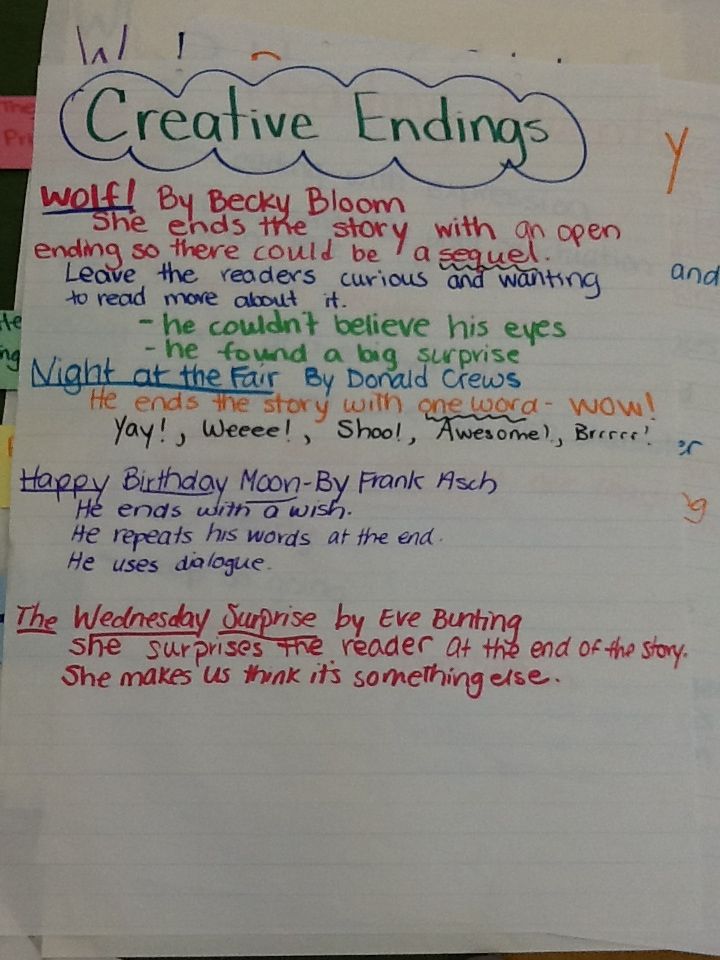 Creative Endings
Wolf! By Becky Bloom
She ends the story with an open
ending so there could be a sequel.
Leave the readers curious and wanting
to read more about it.
- he couldn't believe his eyes
- he found a big surprise
Night at the Fair By Donald Crews
He ends the story with one word - WOW!
Yay!, Weeee!, Shoo!, Awesome!, Brrrrr!
Happy Birthday Moon - By Frank Asch
He ends with a wish.
He repeats his words at the end.
He uses dialogue.
The Wednesday Surprise by Eve Bunting
She surprises the reader at the end of the story.
She makes us think it's something else.
y
and